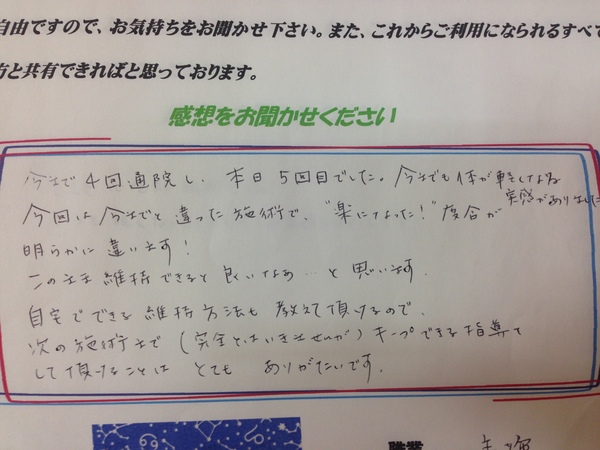 自由ですので、お気持ちをお聞かせ下さい。また、これからご利用になられるすべて
方と共有できればと思っております。
感想をお聞かせください
今まで4回通院し、本日5回目でした。今までも体が軽くなる
実感がありました
今回は今までと違った施術で、"楽になった!"度合が
明らかに違います!
このまま維持できると良いなあ…と思います。
自宅でできる維持方法も教えて頂けるので、
次の施術まで(完全とはいきませんが)キープできる指導を
して頂けることはとてもありがたいです。
職業
主婦